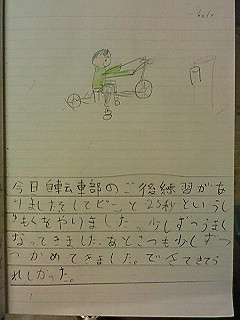 今日自転車部のご後練習があ
りました。そしてピンと25秒というし
もくをやりました。少しずつうまく
なってきました。あとこつも少しずつ
つかめてきました。できてきてう
れしかった。